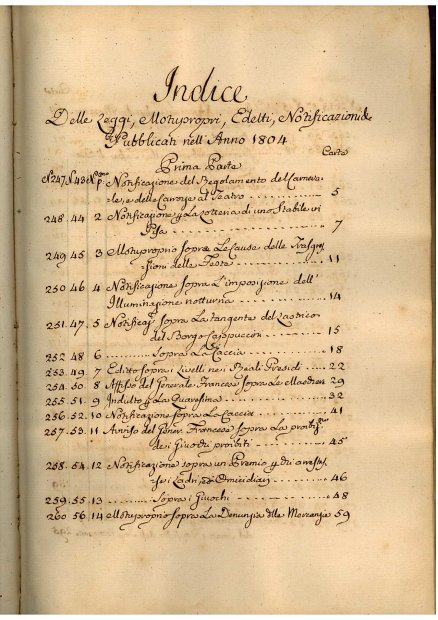 Indice
Delle Leggi, Motuproprj, Editti, Notificazioni &
Pubblicati nell'Anno 1804
Carte
Prima Parte
N 247. N 43. N p.mo Notificazione del Regolamento del Carneva-
le, e delle Carrozze al Teatro ............ 5
248. 44 2 Notificazione p La Lotteria di uno Stabile in
Pisa ............ 7
249 45 3 Motuproprio sopra Le Cause delle Trasgres-
sioni delle Feste ............ 11
250 46 4 Notificazione sopra L'imposizione dell'
Illuminazione notturna ............ 14
251. 47 5 Notificaz. sopra La tangente del Lastrico
del Borgo Cappuccini ............ 15
252 48 6 ............ Sopra La Caccia ............ 18
253. 49. 7 Editto sopra i Livelli ne i Reali Presidj .... 22
254. 50 8 Affiso del Generale Francese sopra Le Maschere 29
255. 51. 9 Indulto p La Quaresima ............ 32
256. 52. 10 Notificazione sopra La Caccia ............ 41
257. 53. 11 Avviso del Gener. Francese sopra La proibiz.ne
de i Giuochi proibiti ............ 45
258. 54. 12 Notificazione sopra un Premio p chi arresta-
se i Ladri, ed Omicidiarj ............ 46
259. 55. 13 ............ Sopra i Giuochi ............ 48
260 56. 14 Motuproprio sopra La Denunzia delle Mercanzie 59